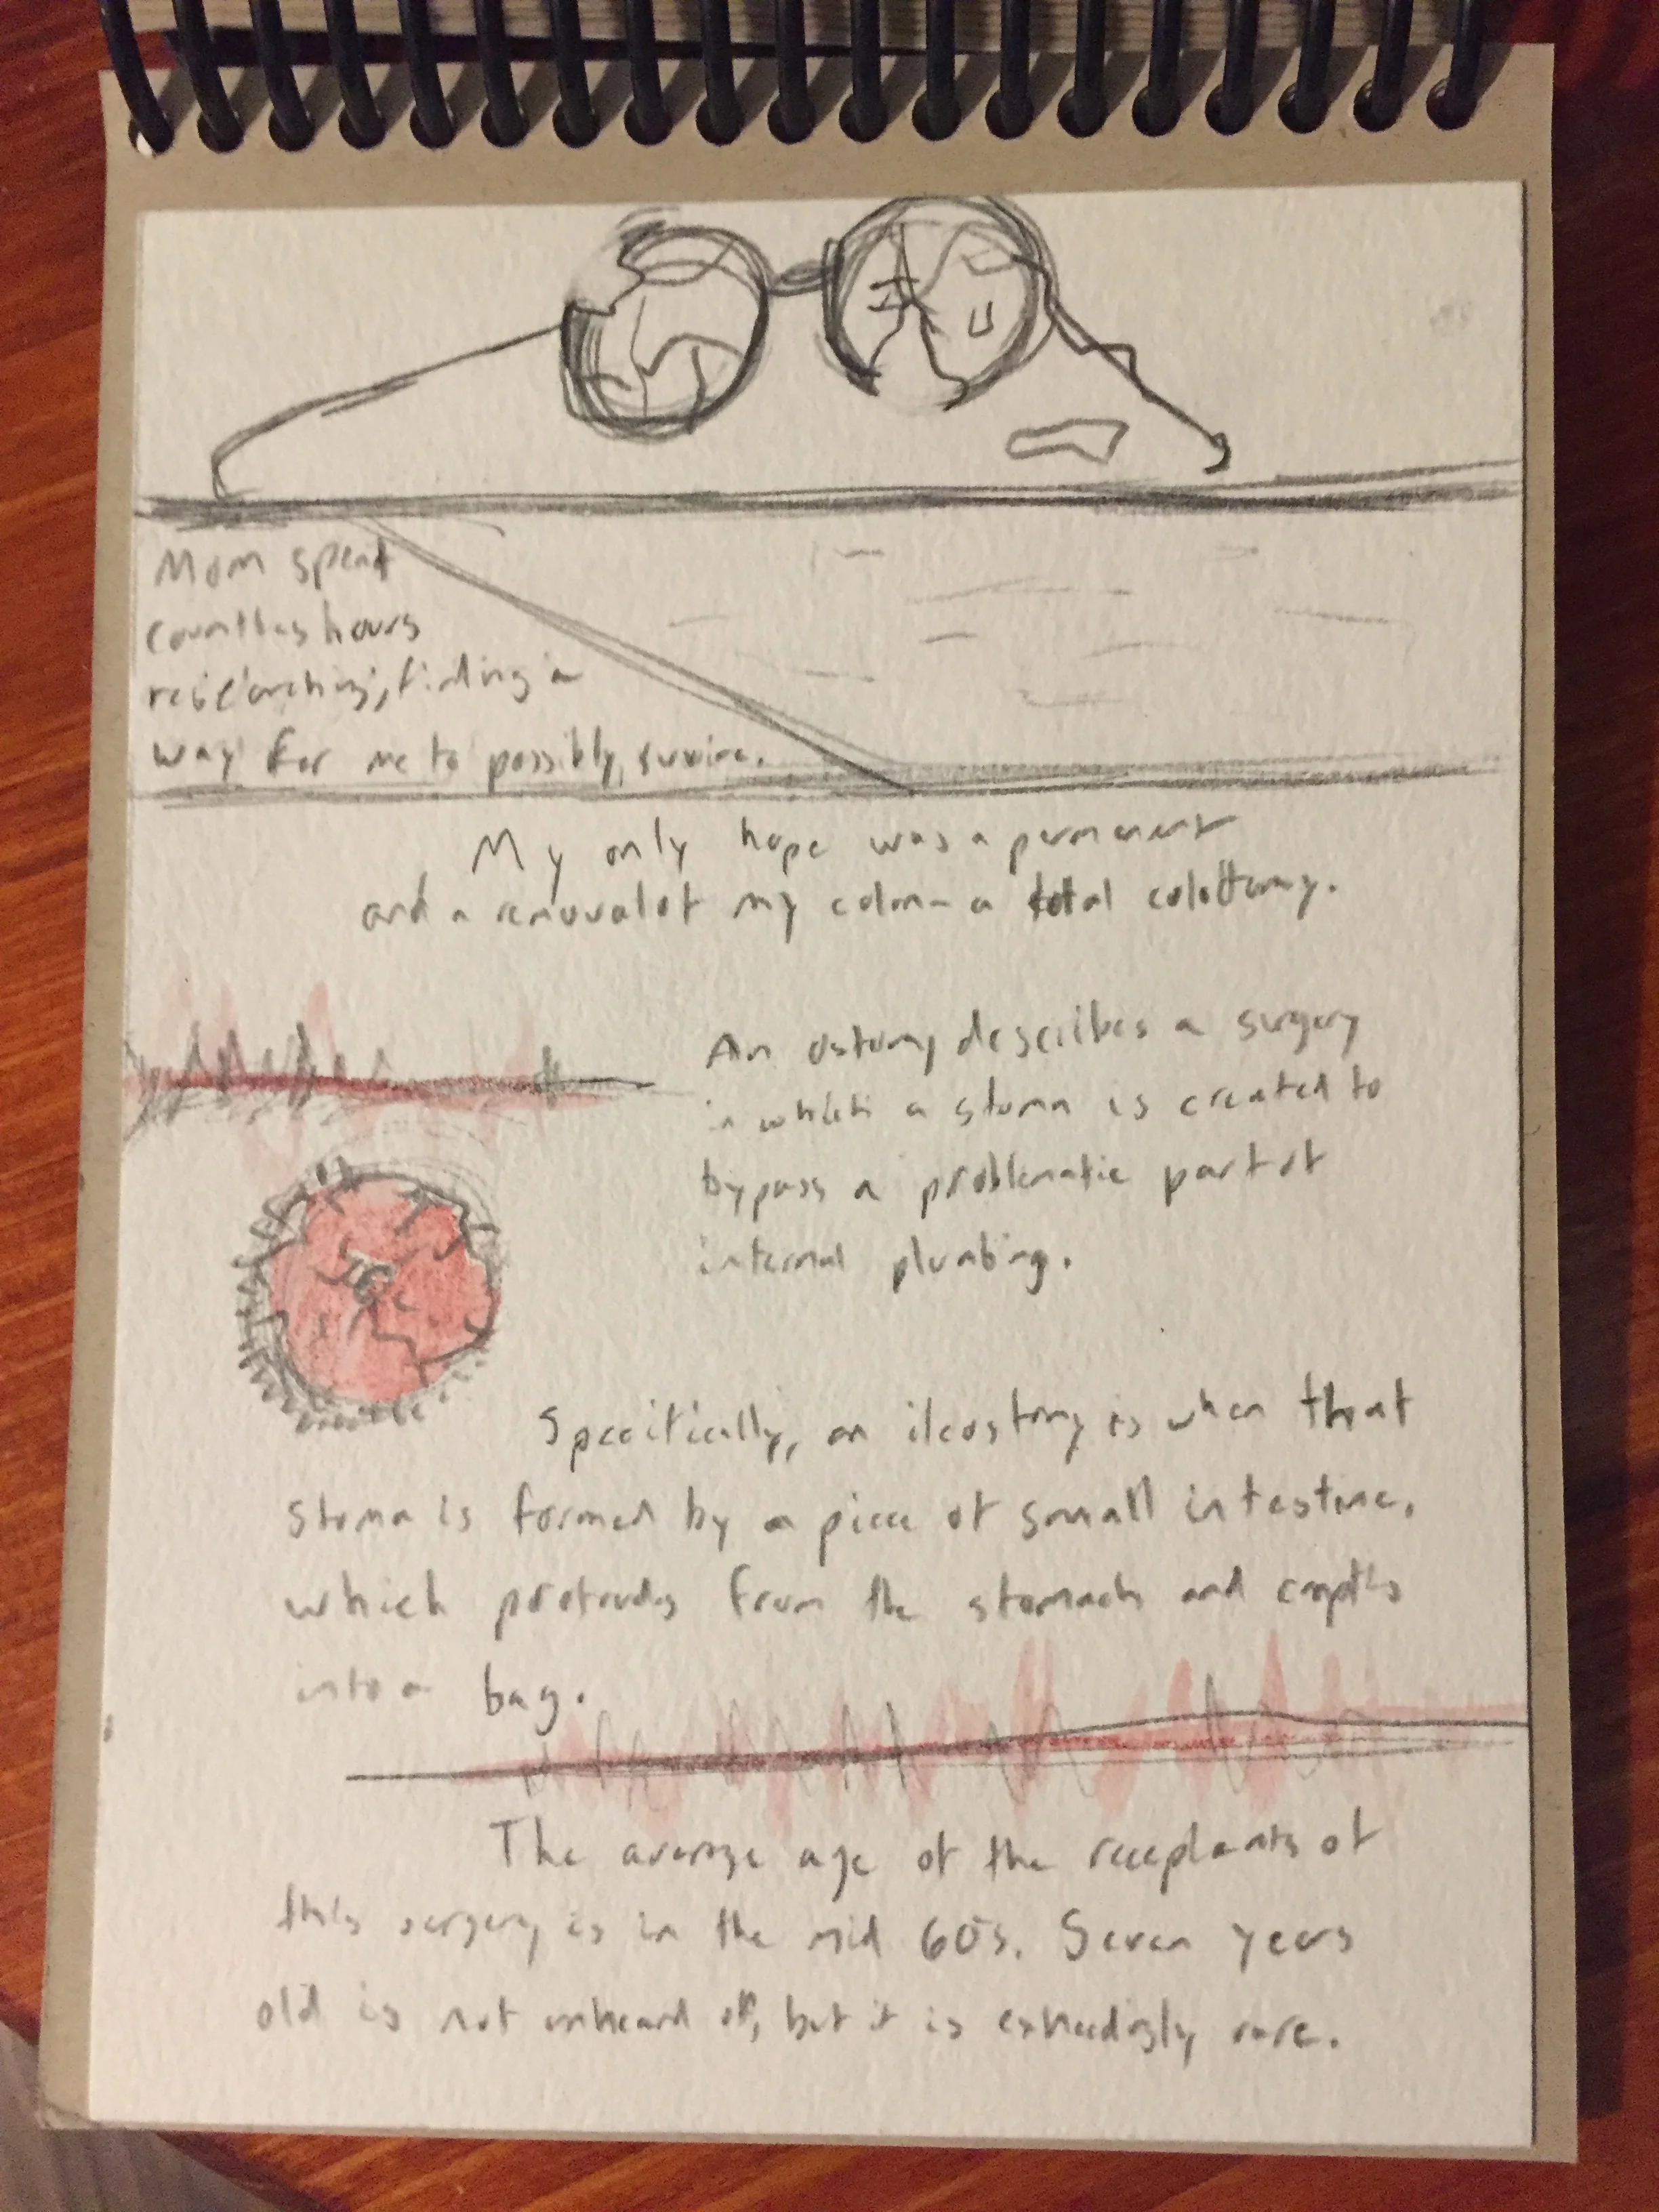 Mom spent
countless hours
researching, finding a
way for me to possibly survive.
My only hope was a permenent
and a removal of my colon - a total colottomy.
An ostomy describes a surgery
in which a stoma is created to
bypass a problematic part of
internal plumbing.
Specifically, an ileostomy is when that
stoma is formed by a piece of small intestine,
which protrudes from the stomach and empties
into a bag.
The average age of the receplants of
this surgery is in the mid 60's. Seven years
old is not unheard of, but it is exheedingly rare.